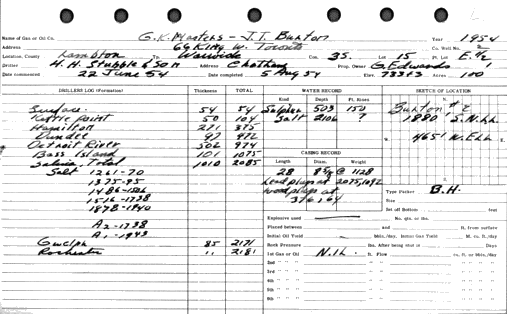 Name of Gas or Oil Co. G.K. Masters - J.T. Buxton Year 1954
Address 66 King W. Toronto Co. Well No. 2
Location, County Lambton Tp. Warwick Con. 35. Lot 15 Pt. Lot E.1/2
Driller H.H. Stubble & Son Address Chatham Prop. Owner G. Edwards
Date commenced 22 June 54 Date completed 5 Aug 54 Elev. Acres 100
DRILLERS LOG (Formation) Thickness TOTAL WATER RECORD SKETCH OF LOCATION
Kind Depth Ft. Rises
Surface 54 54 Sulphur 503 150 Buxton #2
Kettle Point 50 104 Salt 2106 ? 1880' S.N.LL
Hamilton 271 375
Dundee 97 472 CASING RECORD 465' W.ELL
Detroit River 502 974 Length Diam. Weight
Bass Island 101 1075
Salina, Total 1010 2085 28 @ 1128
Salt 1261-70 Lead plugs at 2075, 1092
1375-95 at Type Packer B.H.
1486-1506 Size
1516-1738 Set off Bottom feet
1878-1940 No. qts. or lbs.
Explosive used
A2-1738 Placed between and ft. from surface
A1-1943 Initial Oil Yield bbls./day, Initial Gas Yield M. cu. ft./day
Guelph 85 2171 Rock Pressure lbs. After being shut in Days
Rochester 11 2181 1st Gas or Oil N.ih. ft. Flow cu. ft. or bbls./day
2nd
3rd
4th
5th